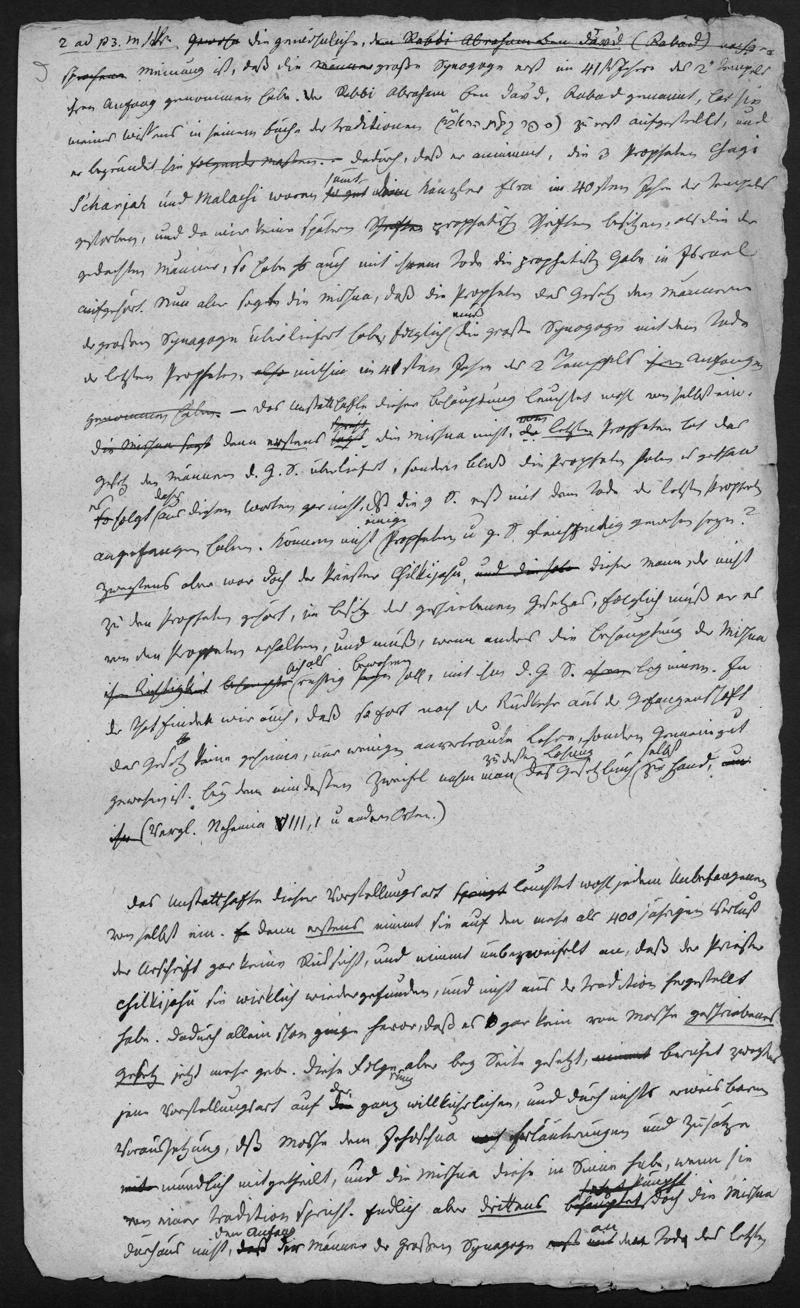 2 ad p3. m. die gewöhnliche, den Rabbi Abraham ben David (Rabad)
Meinung ist, daß die große Synagoge erst im 41 Jahre des 2n Tempels
ihren Anfang genommen habe. Der Rabbi Abraham ben David, Rabad genannt, hat sie
meines Wissens in seinem Buche der Traditionen (ספר קבלת הראב״ד) zuerst aufgestellt, und
er begründet sie folgender maßen. – dadurch, daß er annimmt, die 3 Propheten Chagi
Scharjah und Malachi waren samt dem Kanzler Esra im 40sten Jahr des Tempels
gestorben, und da wir keine spätern Schriften prophetische Schriften besitzen, als die der
gedachten Männer, so habe auch mit ihrem Tode die prophetische Gabe in Israel
aufgehört. Nun aber sagt die Mischna, daß die Propheten das Gesetz den Männern
der großen Synagoge überliefert haben, folglich muß die große Synagoge mit dem Tode
der letzten Propheten, also mithin im 41sten Jahre des 2 Tempels ihren Anfang
genommen haben. – Das Unstatthafte dieser Behauptung leuchtet wohl von selbst ein.
Die Mischna sagt denn erstens sagt die Mischna nicht, die letzten Propheten hat das
Gesetz den Männern d. G. S. überliefert, sondern bloß die Propheten haben es gethan
es folgt daher aus diesen Worten gar nicht, daß die g S. erst mit dem Tode der letzten Propheten
angefangen habe. Können nicht einige Propheten u g. S. gleichzeitig gewesen seyn?
zweytens aber war doch der Priester Chilkijahu, und dieser Mann, der nicht
zu den Propheten gehört, im Besitz des geschriebenen Gesetzes, folglich muß er es
von den Propheten erhalten, und muß, wenn anders die Behauptung der Mischna
ihre Richtigkeit sich als richtig bewähren soll, mit ihm d. G. S. beginnen. In
der That finden wir auch, daß sofort nach der Rückkehr aus der Gefangenschaft
das Gesetz keine geheime, nur wenigen anvertraute Lehre, sondern Gemeingut
gewesen ist. Bey dem mindesten Zweifel nahm man zu dessen Lösung das Gesetzbuch selbst zur Hand,
(Vergl. Nehemia VIII, 1 u andern Orten.)
Das Unstatthafte dieser Vorstellungsart leuchtet wohl jedem Unbefangenen
von selbst ein. denn erstens nimmt sie auf den mehr als 400 jährigen Verlust
der Urschrift gar keine Rücksicht, und nimmt unbezweifelt an, daß der Priester
Chilkijahu sie wirklich wiedergefunden, und nicht aus der Tradition hergestellt
habe. Dadurch allein schon ginge hervor, daß es gar kein von Moshe geschriebenes
Gesetz jetzt mehr gebe. Diese Folgerung aber bey Seite gesetzt, beruhet zweytens
jene Vorstellungsart auf der ganz willkührlichen, und durch nichts erweisbaren
Voraussetzung, daß Moshe dem Jehoschua Erläuterungen und Zusätze
mündlich mitgetheilt, und die Mischna diese in Sinne habe, wenn sie
von einer Tradition spricht. Endlich aber drittens behauptet doch die Mischna
durchaus nicht, den Anfang der Männer der großen Synagoge erst mit dem Tode des letzten